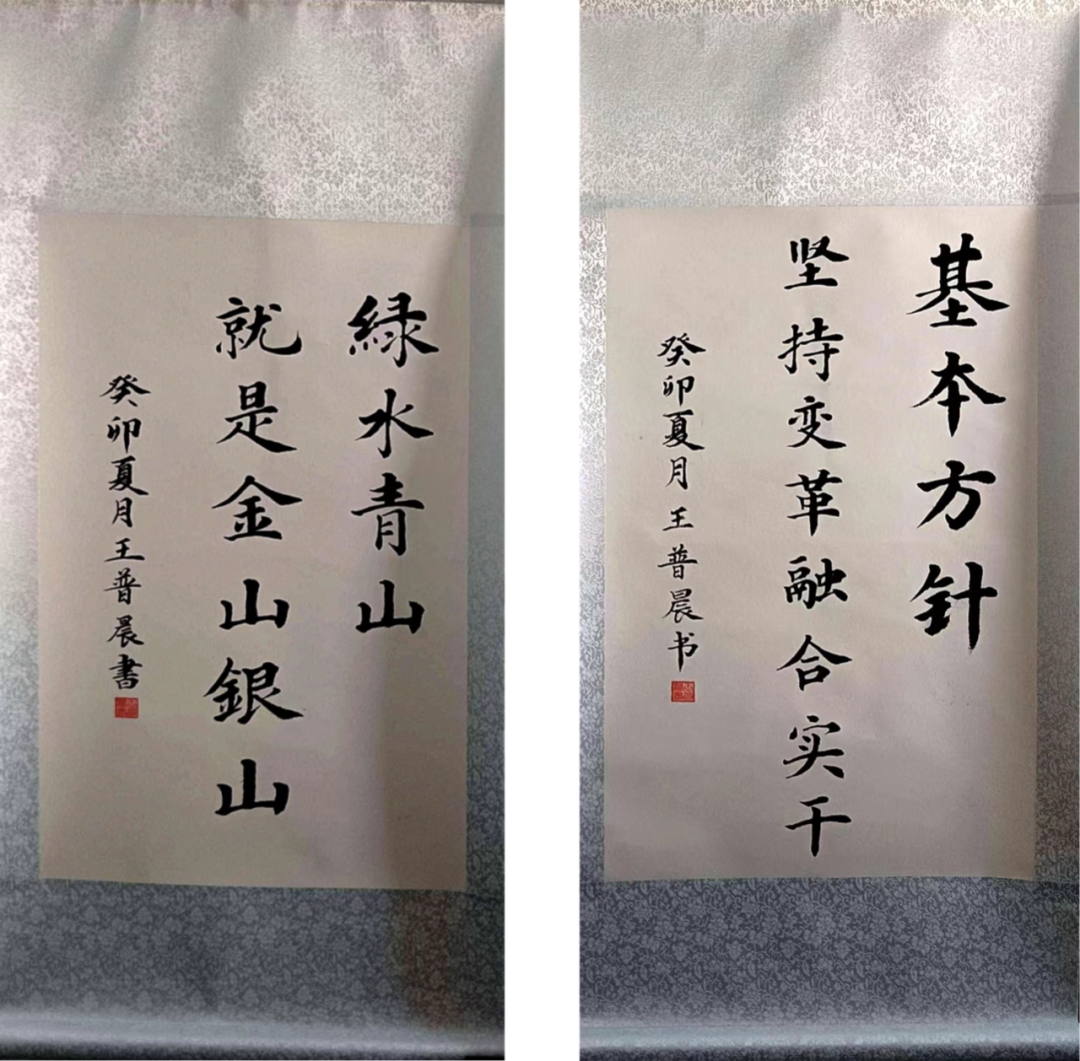 緑水青山
就是金山銀山
癸卯夏月王普晨書
基本方针
坚持变革融合实干
癸卯夏月王普晨书